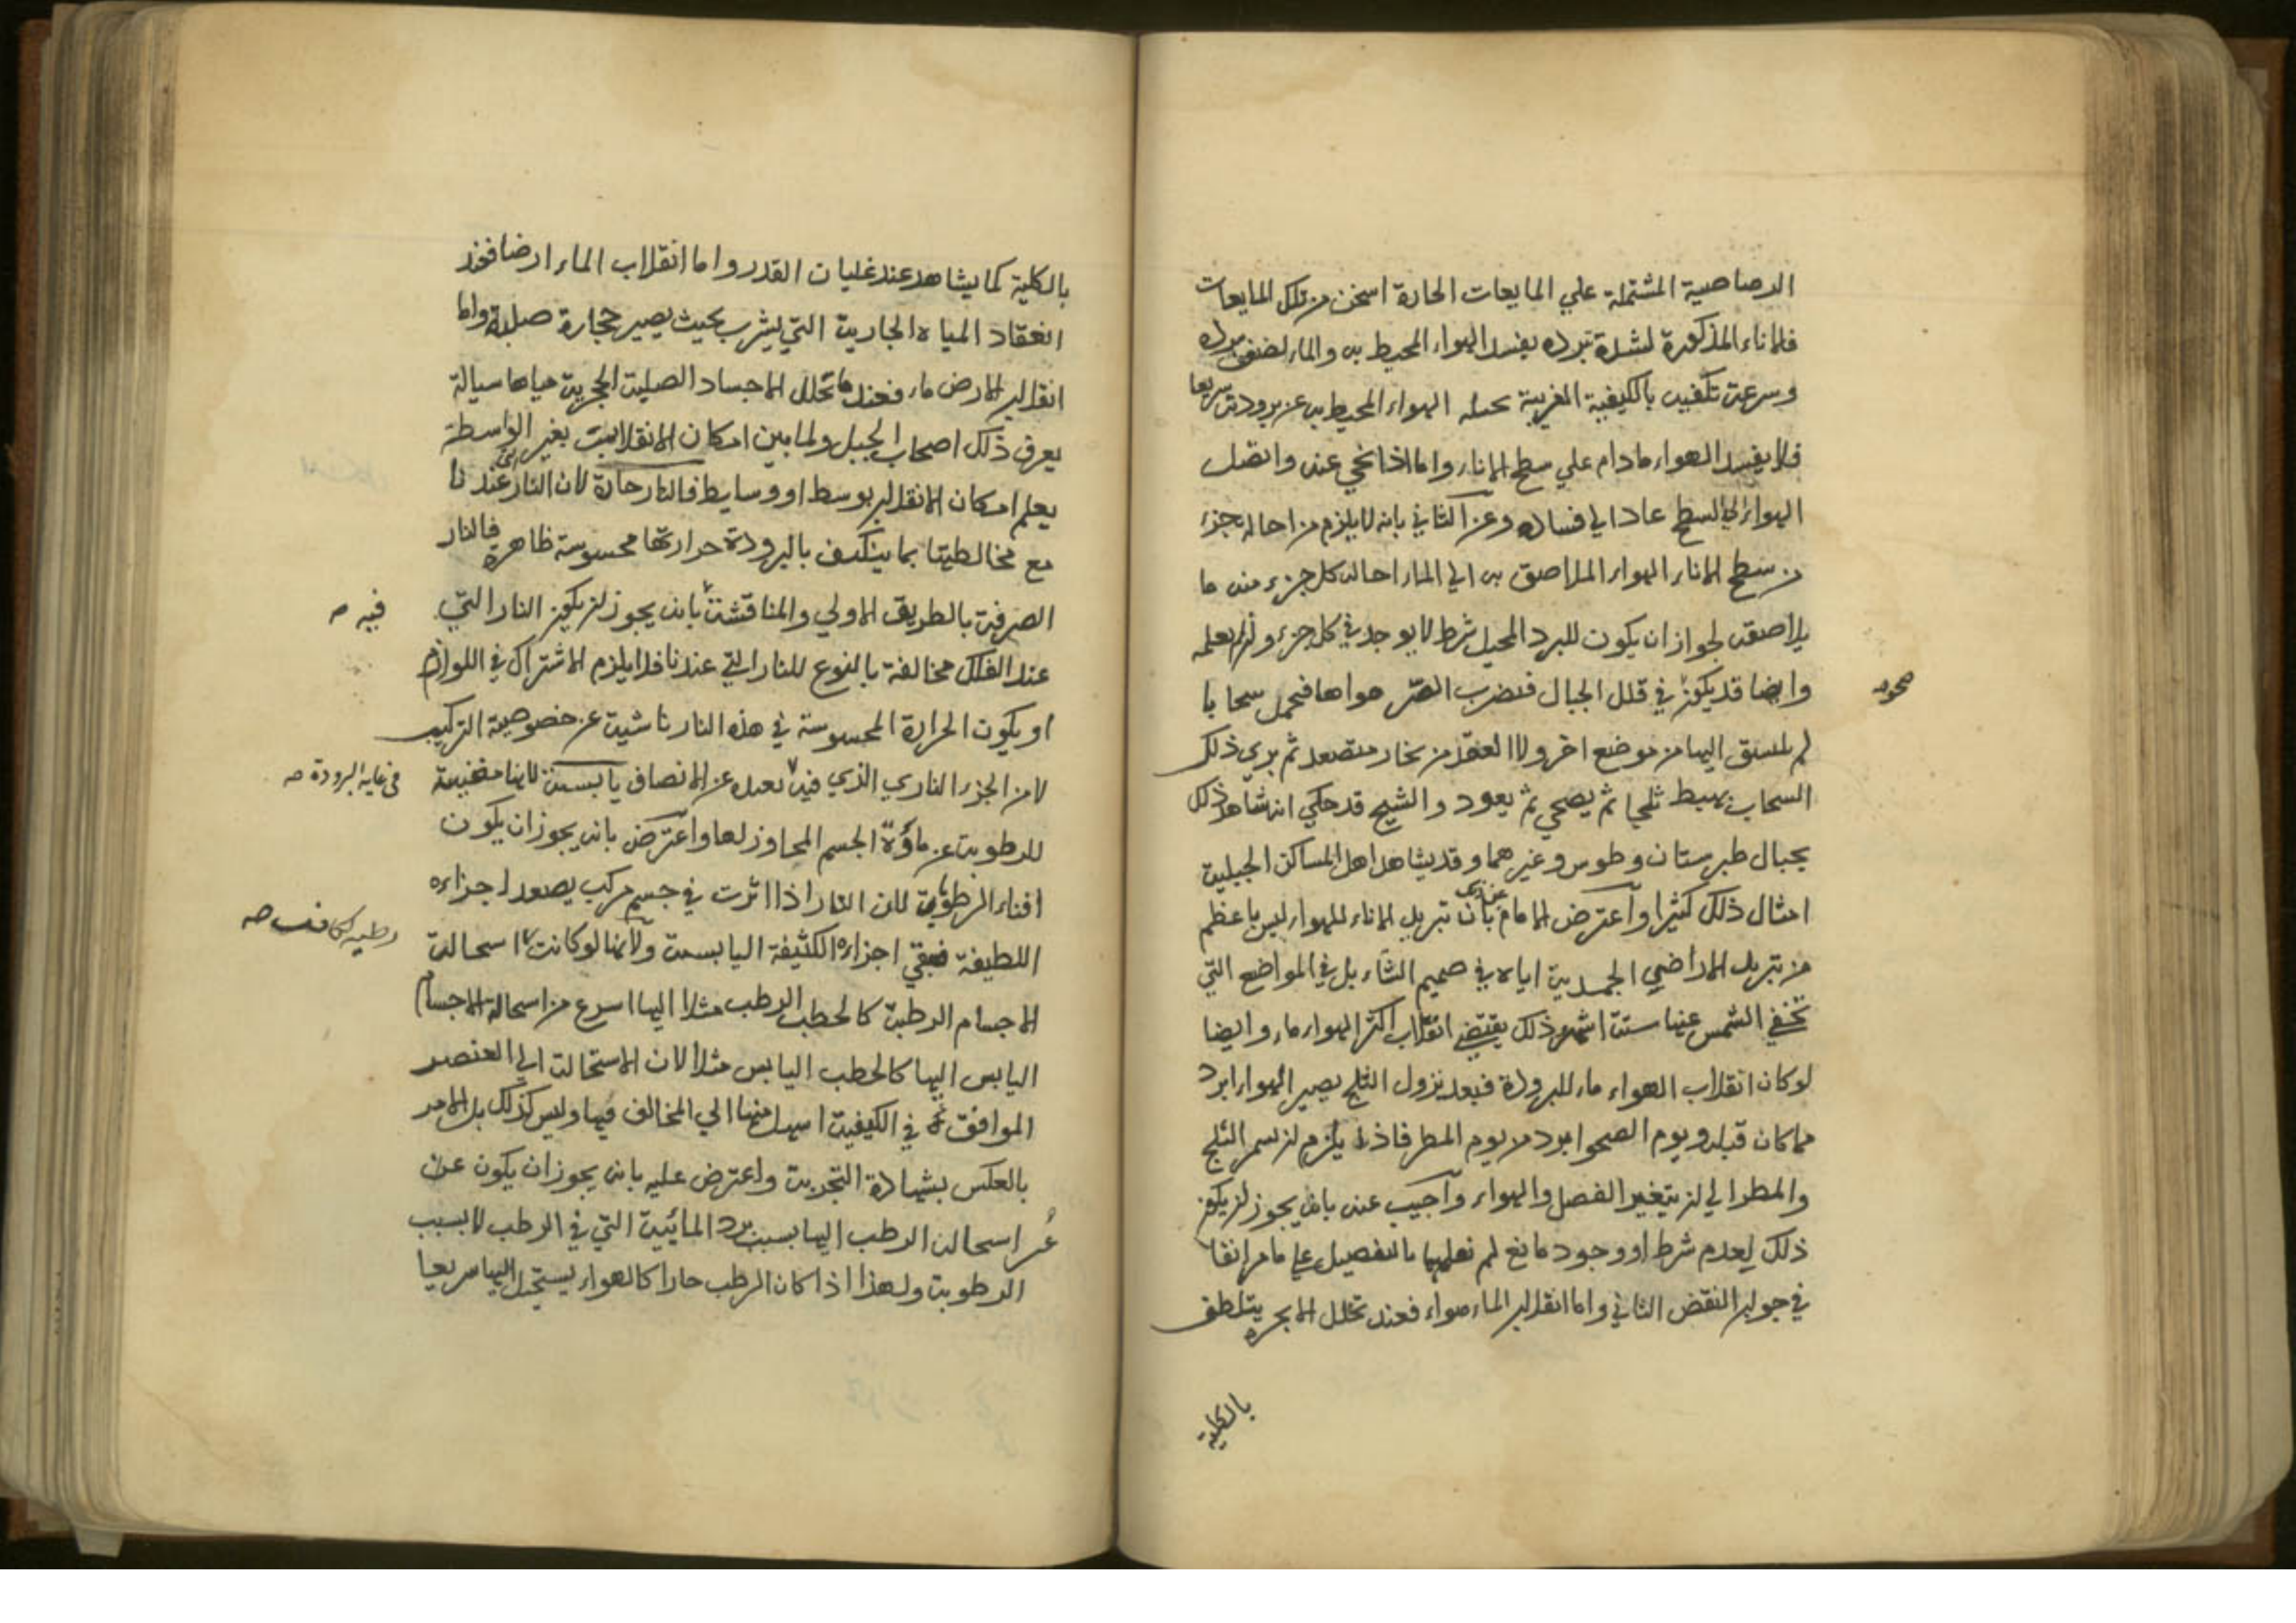 الرصاصية المشتملة علي المايعات الحارة اسخن من تلك المايعات
فالاناء المذكورة لشدة تبرده يفسد الهواء المحيط به والماء لضعف برده
وسرعة تكفيه بالكيفية الغريبة المحيط به عن برودته سريعا
فلا يفسد الهواء مادام علي سطح الاناء واما اذا نحي عنه واتصل
الهواء بالسطح عاد الي فساده وعن الثاني بانه لا يلزم من احالة جزء
من سطح الاناء الهواء الملاصق به الي الماء احالة كل جزء منه ما
يلاصقه لجواز ان يكون للبرد المحيل شرط لا يوجد في كل جزء وان لم نعلمه
وايضا قد يكون في قلل الجبال فيضرب الصر هواها فيجمل سحابا
صحو
لم ينسق اليها من موضع اخر ولا انعقد من بخار متصعد ثم يري ذلك
السحاب يهبط ثلجا ثم يصحي ثم يعود والشيخ قد حكي انه شاهد ذلك
بجبال طبرستان وطوس وغيرهما وقد يشاهد اهل المساكن الجبلية
امثال ذلك كثيرا واعترض الامام بان تبريد الاناء للهواء ليس باعظم
من تبريد الاراضي الجمدية اياه في صميم الشتاء بل في المواضع التي
تخفي الشمس عنها ستة اشهر وذلك يقتضي انقلاب اكثر الهواء ماء وايضا
لو كان انقلاب الهواء ماء للبرودة فبعد نزول الثلج يصير الهواء ابرد
مما كان قبله ويوم الصحو ابرد من يوم المطر فاذن يلزم ان يستمر الثلج
والمطر الي ان يتغير الفصل والهواء واجيب عنه بانه يجوز ان يكون
ذلك لعدم شرط او وجود مانع لم نعلمها بالتفصيل علي ما مر انفا
في جواب النقض الثاني واما انقلاب الماء هواء فعند تخلل الابخره يتلطف
بالكلية
بالكلية كما يشاهد عند غليان القدر واما انقلاب الماء ارضا فعند
انعقاد المياه الجارية التي يشرب بحيث يصير حجارة صلبة واما
انقلاب الارض ماء فعند ما تحلل الاجساد الصلبة الحجرية مياها سيالة
يعرف ذلك اصحاب الجبل ولما بين امكان الانقلابت بغير الواسطة
يعلم امكان الانقلاب بوسط او وسايط فالنار حارة لان النار التي عندنا
مع مخالطتها بما ينكسف بالبرودة حرارتها محسوسة ظاهرة فالنار
الصرفة بالطريق الاولي والمناقشة بانه يجوز ان يكون النار التي
فيه صه
عند الفلك مخالفة بالنوع للنار التي عندنا فلا يلزم الاشتراك في اللوازم
او يكون الحرارة المحسوسة في هذه النار ناشية عن خصوصية التركيب
لا من الجزء الناري الذي فيه بعده عن الانصاف يابسة لانها مفنية
في غاية البرودة صه
للرطوبة عن مادة الجسم المجاوز لها واعترض بانه يجوز ان يكون
افناء الرطوبة لان النار اذا اثرت في جسم مركب يصعد اجزاءه
اللطيفة فيبقي اجزاءه الكثيفة اليابسة ولانها لو كانت استحالة
رطبة لكانت صه
الاجسام الرطبة كالحطب الرطب مثلا اليها اسرع من استحالة الاجسام
اليابس اليها كالحطب اليابس مثلا لان الاستحالة الي العنصر
الموافق في الكيفية اسهل منها الي المخالف فيها وليس كذلك بل الامر
بالعكس بشهادة التجربة واعترض عليه بانه يجوز ان يكون عن
عسر استحالة الرطب اليها بسبب برد المائية التي في الرطب لا بسبب
الرطوبة ولهذا اذا كان الرطب حارا كالهواء يستحيل اليها سريعا